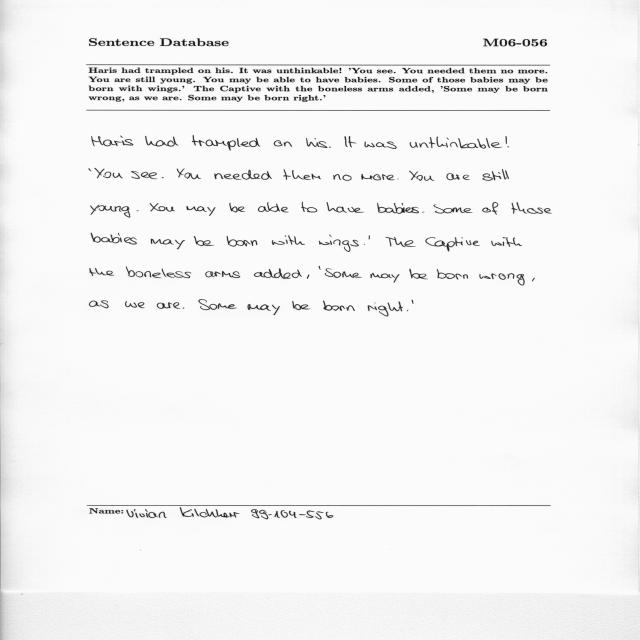 Sentence Database M06-056
Haris had trampled on his. It was unthinkable! 'You see. You needed them no more.
You are still young. You may be able to have babies. Some of those babies may be
born with wings.' The Captive with the boneless arms added, 'Some may be born
wrong, as we are. Some may be born right.'
Haris had trampled on his. It was unthinkable!
'You see. You needed them no more. You are still
young. You may be able to have babies. Some of those
babies may be born with wings.' The Captive with
the boneless arms added, 'Some may be born wrong,
as we are. Some may be born right.'
Name: Vivian 99-104-556